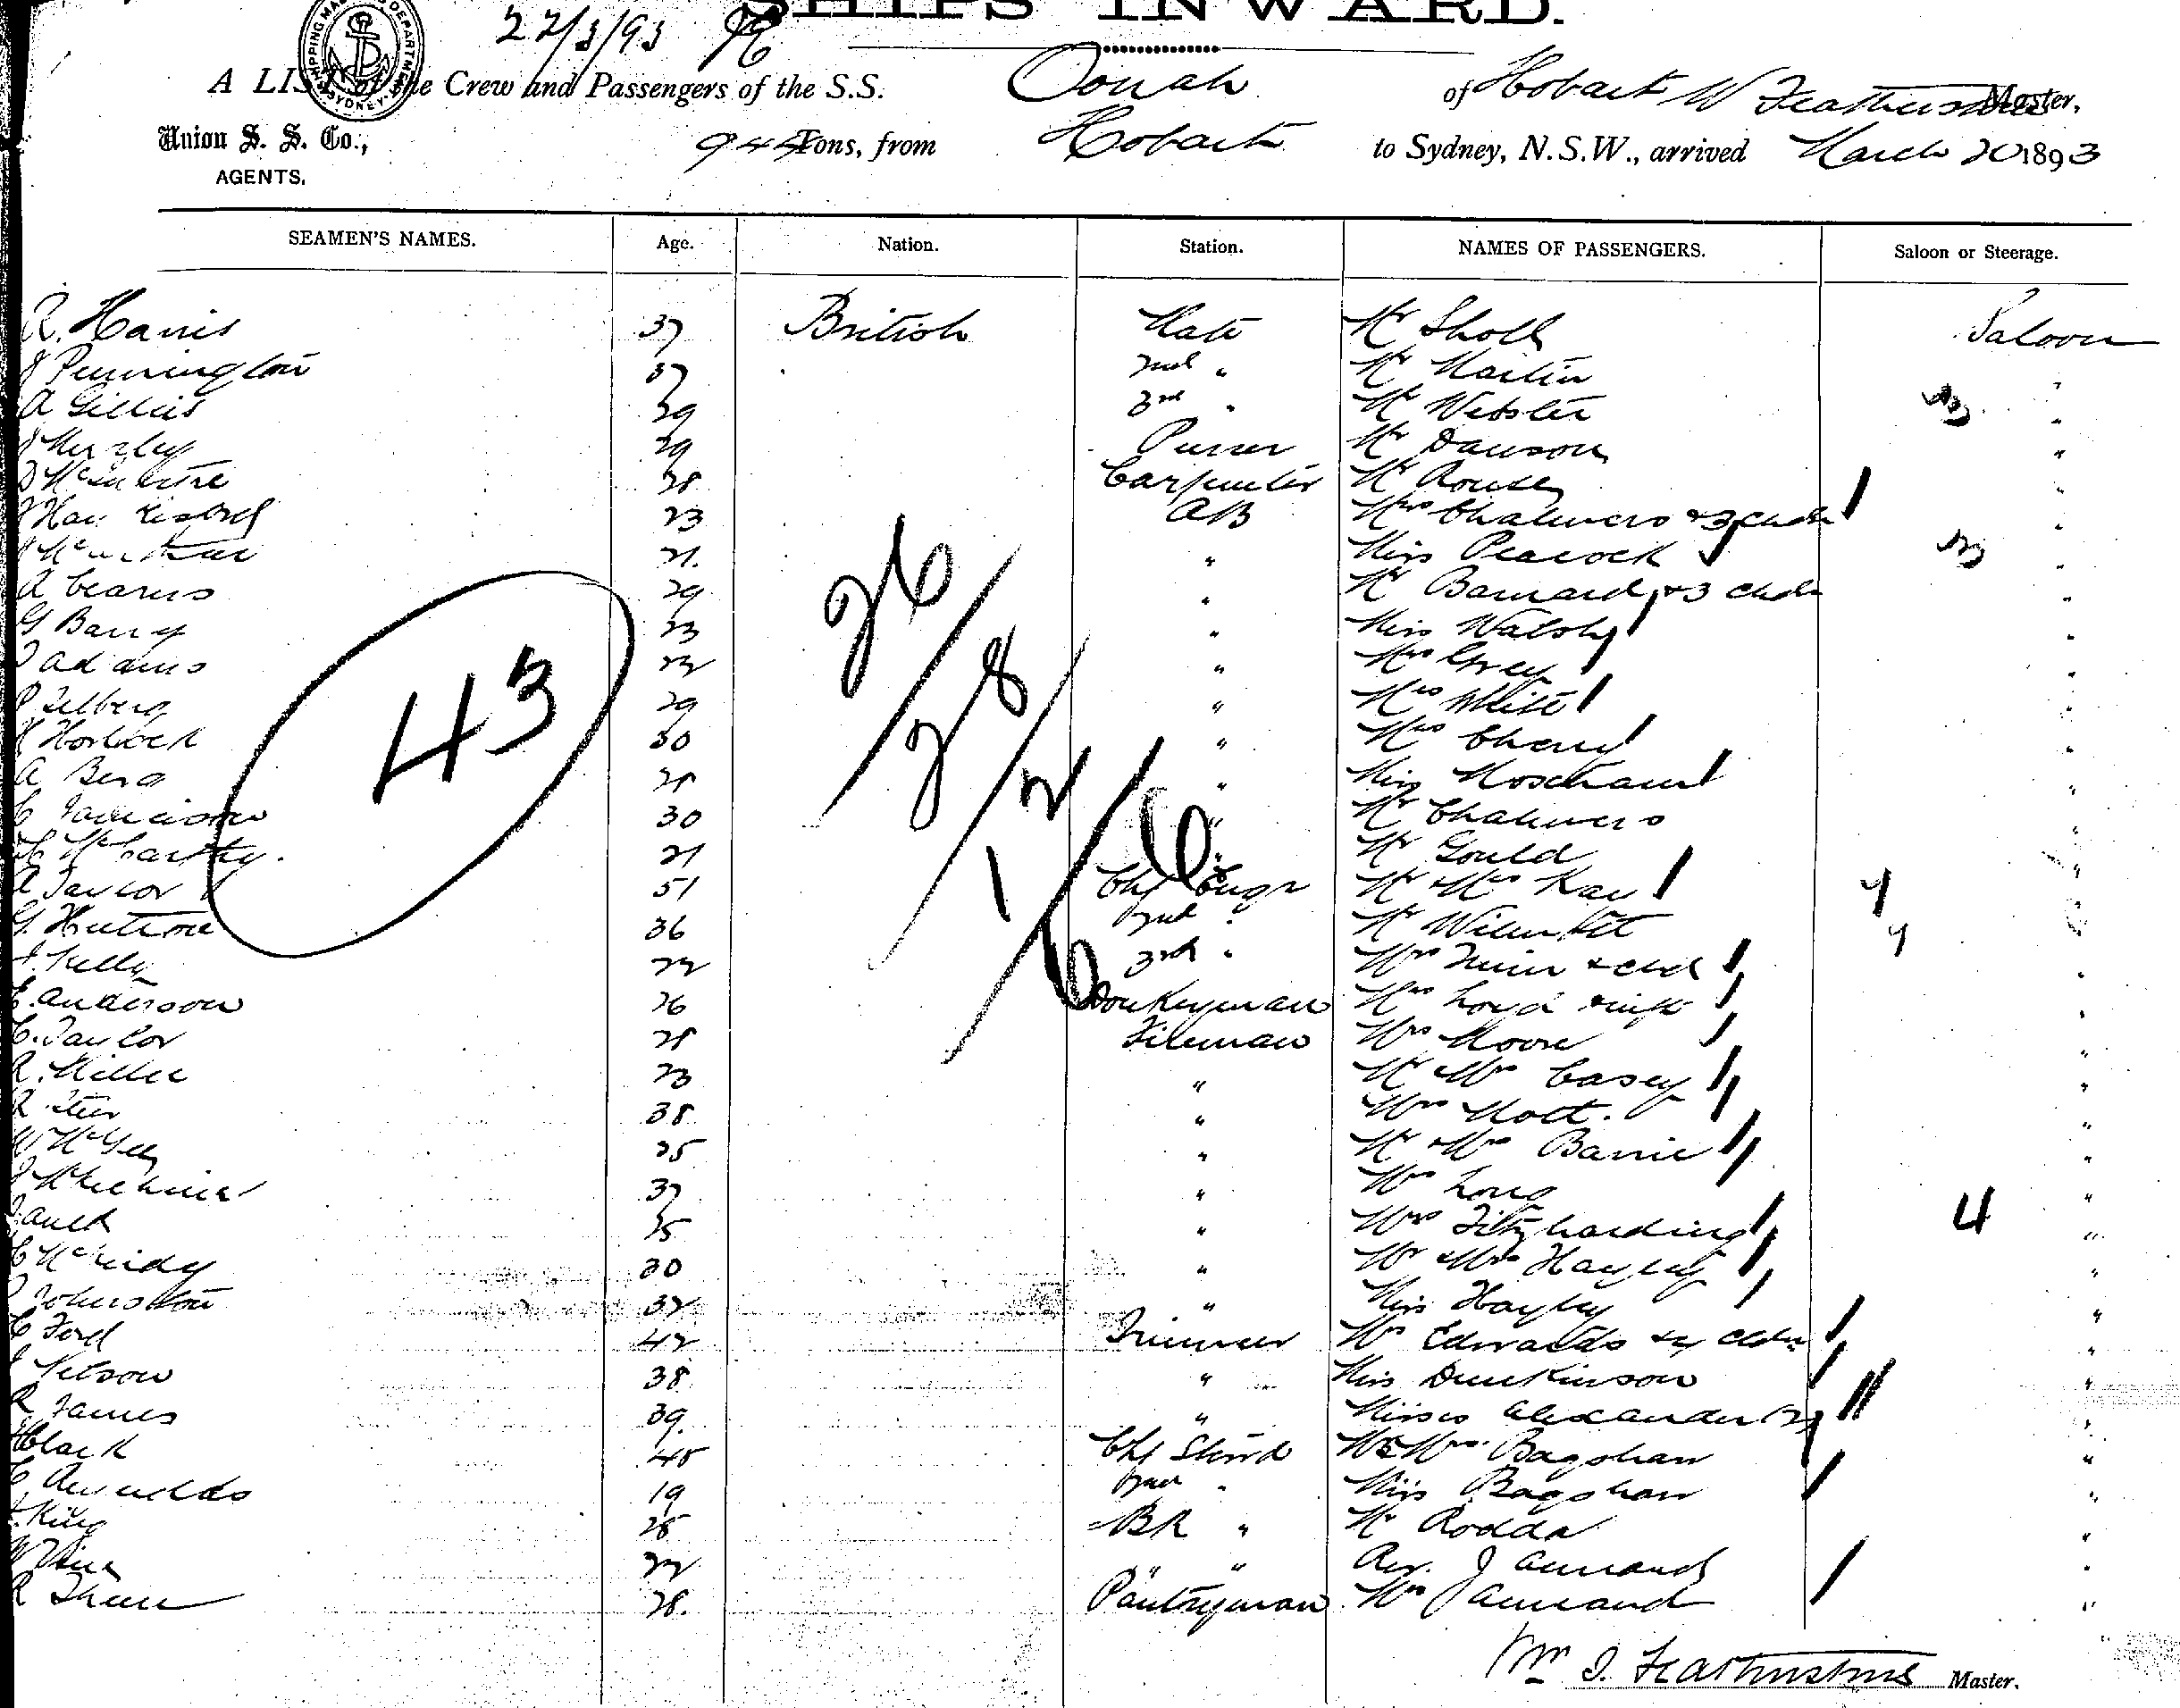 22/3/93
SHIPS INWARD.
A LIST of the Crew and Passengers of the S.S. Oonah of Hobart W Featherstone Master,
Union S. S. Co., 945 Tons, from Hobart to Sydney, N.S.W., arrived March 20 1893
AGENTS.
SEAMEN'S NAMES. Age. Nation. Station. NAMES OF PASSENGERS. Saloon or Steerage.
R. Harris 37 British Mate Mr Sholl Saloon
J Pennington 37 2nd " Mr Martin "
A Gillies 29 3rd " Mr Webster "
29 Purser Mr Dawson "
28 Carpenter Mr Rouse "
23 AB Mrs Chalmers & 3 chdn "
J McArthur 21. " Miss Peacock "
A Cearns 29 " Mr Barnard & 3 chdn "
G Barry 23 " Miss Walsh "
J Adams 22 " Mrs Grey "
29 " Mrs White "
30 " Mrs Cherry "
A Berg 28 " Miss "
C Jamieson 30 " Mr Chalmers "
McCarthy. 21 " Mr Gould "
A Taylor 51 Chf Engr Mr & Mrs Kay "
G. Huttone 36 2nd " Mr "
J. Kelly 22 3rd " Mrs & chd "
E. Anderson 26 Donkeyman Mrs Loyd & inft "
C. Taylor 28 Fireman Mrs Moore "
R. Miller 23 " Mr & Mrs Casey "
38 " Mrs Holt. "
W McGee 25 " Mr & Mrs Barrie "
37 " Mrs Long "
25 " Mrs Fitzharding "
30 " Mr & Mrs Hayley "
J Johnston 32 " Miss Hayley "
C Ford 42 Trimmer Mrs Edwards & chdn "
Nelson 38 " Miss Dunkinson "
R James 39. " Misses Alexander (2) "
Clark 45 Chf Stewd Mr & Mrs Bagshaw "
19 2nd " Miss Bagshaw "
King 25 BR " Mr Rodda "
22 " " Rev. J "
28. Pantryman Mrs "
43
26
28
12
1
6
6
4
Wm J. Featherstone Master.